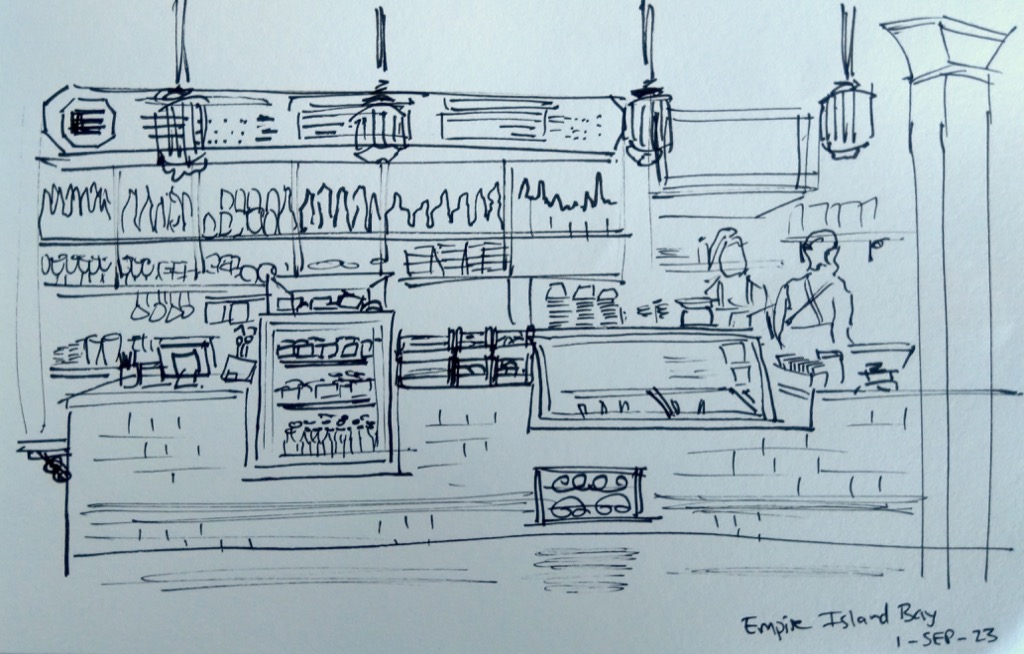 Empire Island Bay
1-SEP-23